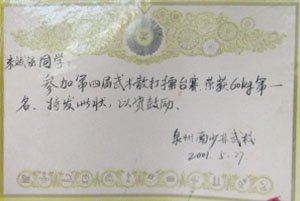 李斌强同学:
参加第四届武术散打擂台赛荣获60kg第一
名、特发此状,以资鼓励。
泉州南少林武校
2001.5.27